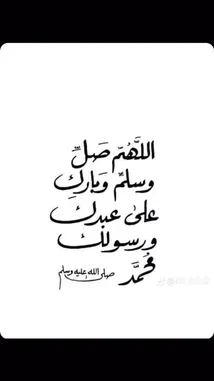 اللَّهُمَّ صَلِّ
وسلم وبارك
على عبدك
ورسولك
مُحمَّد صلى الله عليه وسلم